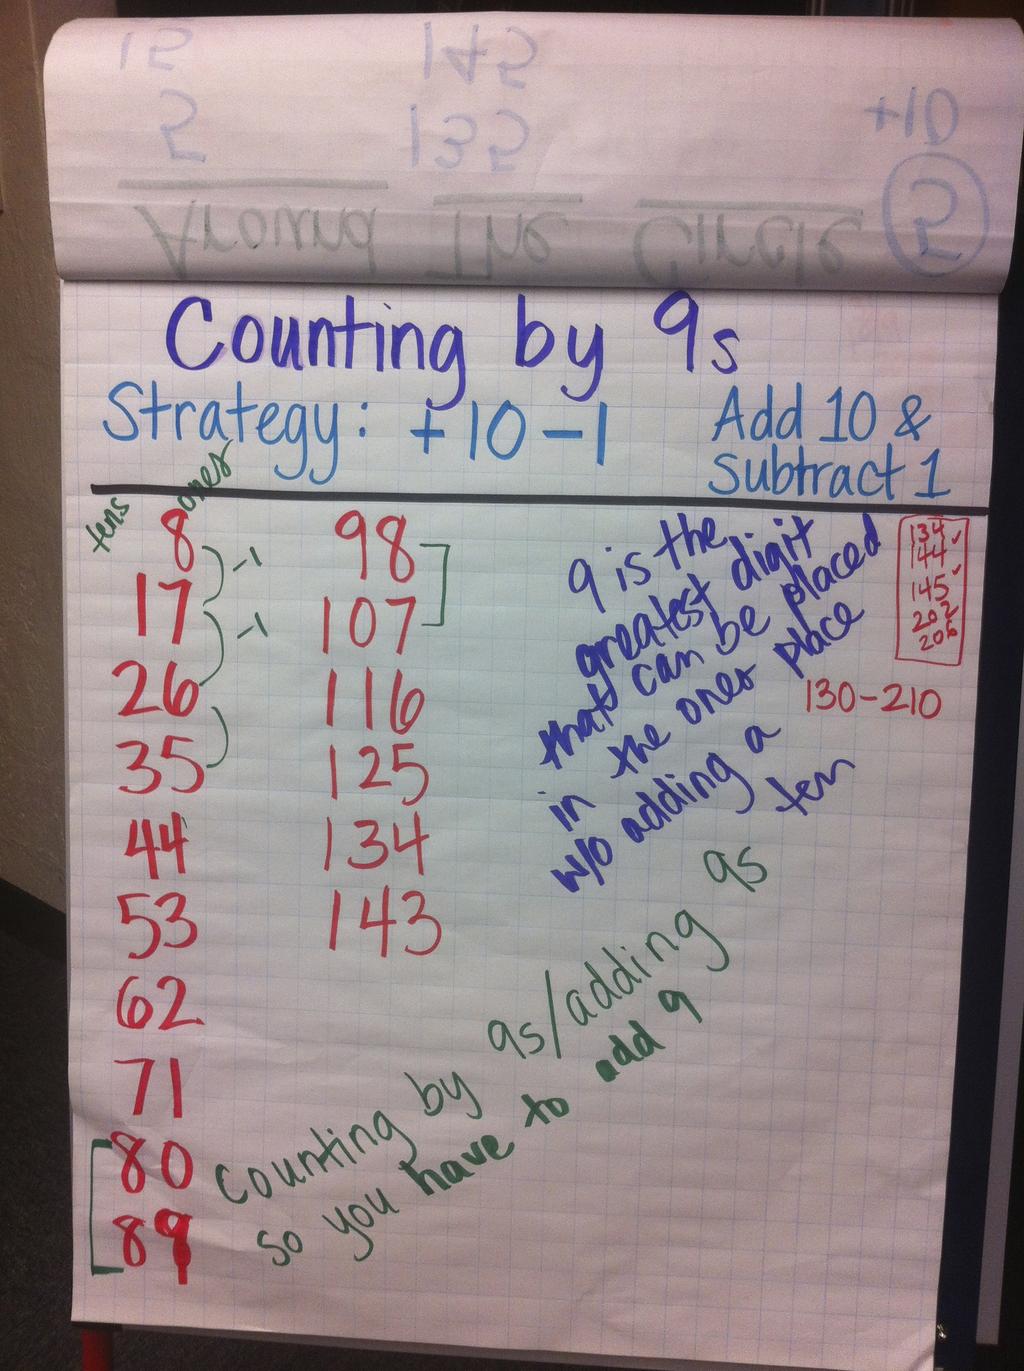 15 145
5 135 +10
Around The Circle 5
Counting by 9s
Strategy: +10-1
Add 10 &
Subtract 1
tens ones
8
17
26
35
44
53
62
71
80
89
-1
-1
98
107
116
125
134
143
9 is the
greatest digit
that can be placed
in the ones place
w/o adding a
ten
134
144 ✓
145 ✓
202
206
130-210
Counting by 9s/adding 9s
so you have to add 9